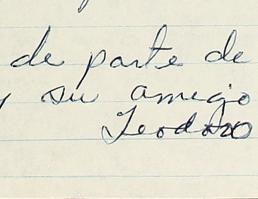 de parte de
y su amigo
Teodoro